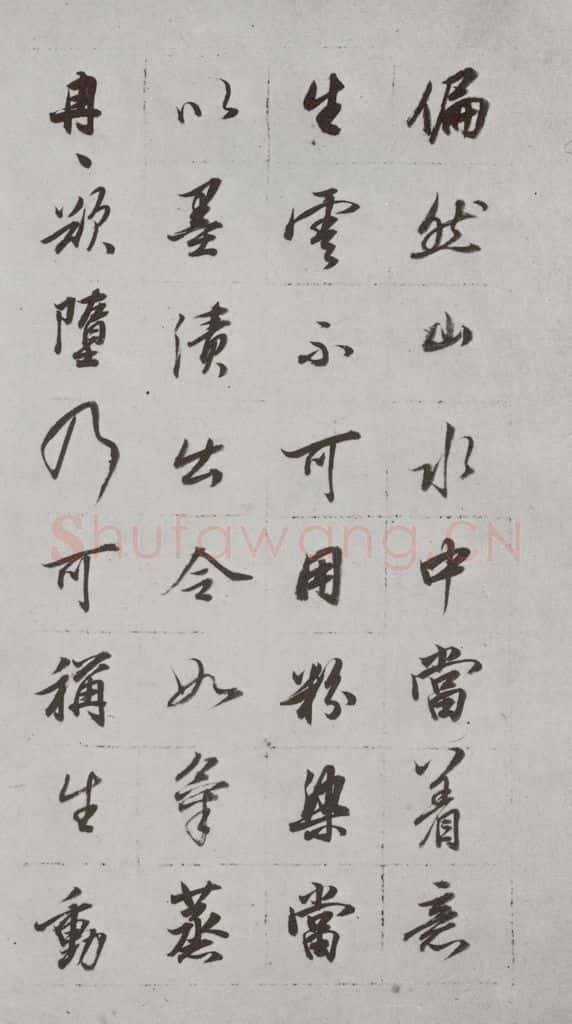 偏然山水中當着意
生雲不可用粉染當
以墨漬出令如氣蒸
冉、欲墮乃可稱生動
Shufawang.CN